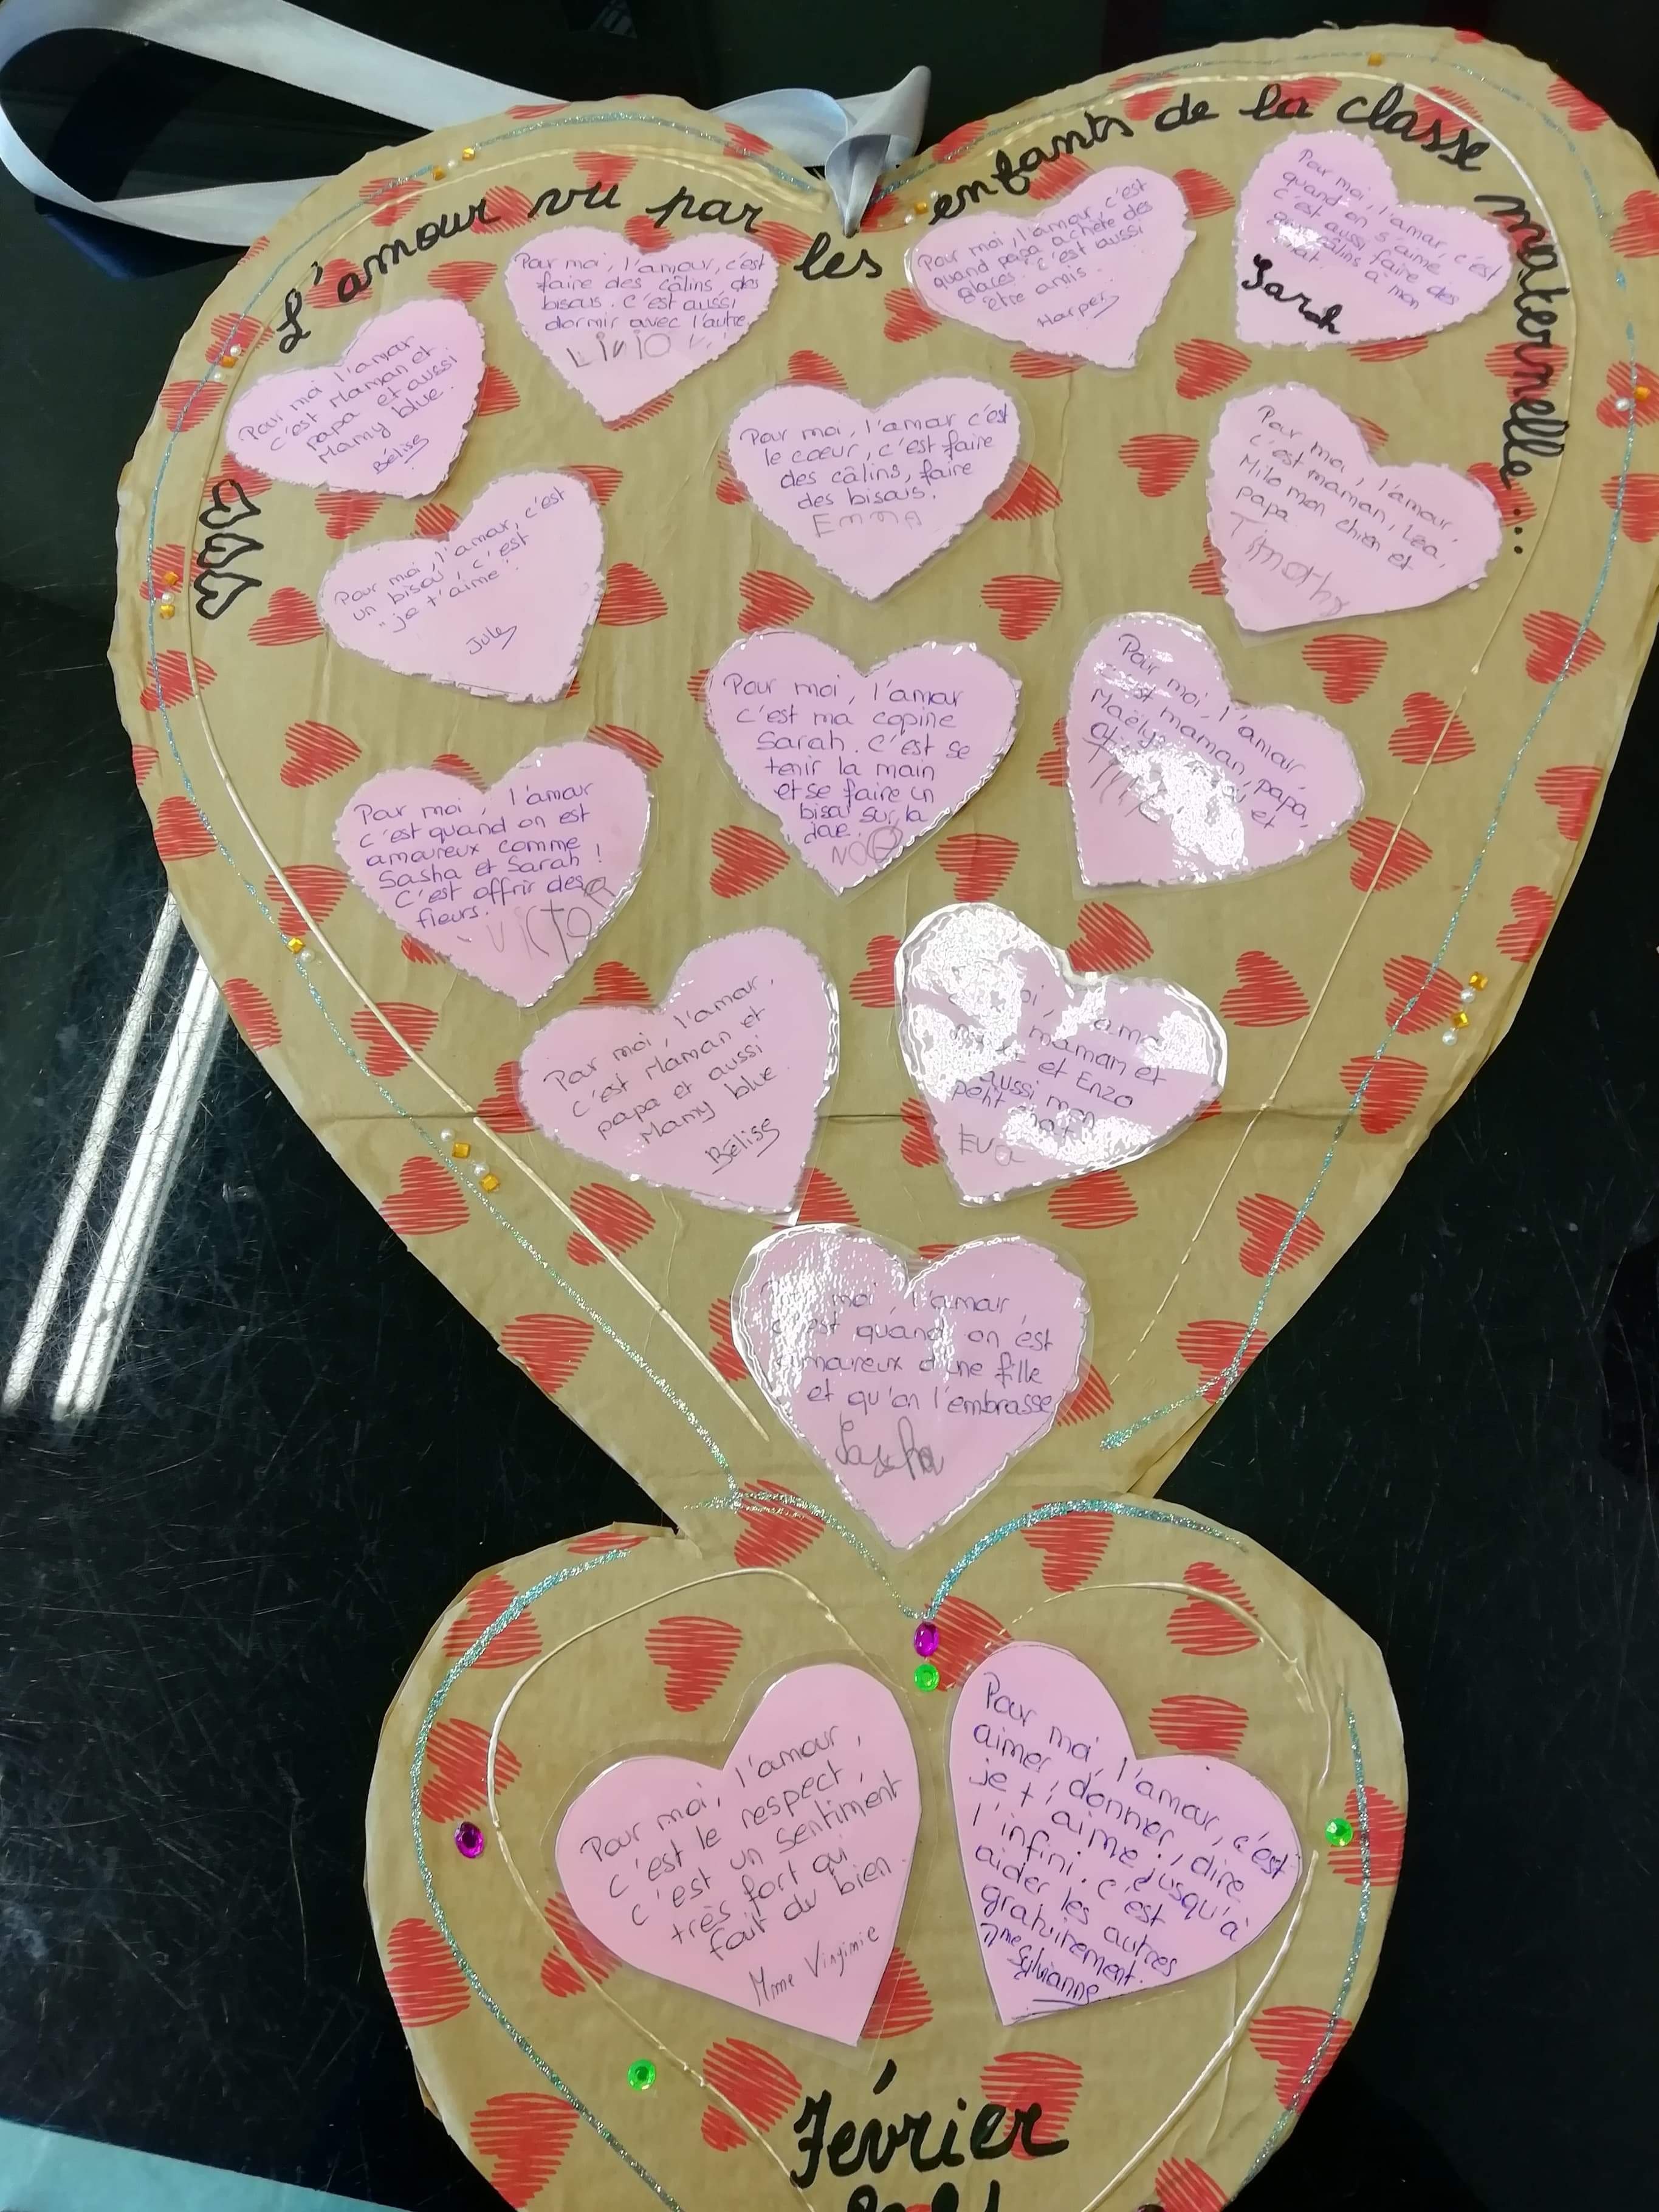 L'amour vu par les enfants de la classe maternelle...
Pour moi, l'amour, c'est
faire des câlins, des
bisous. C'est aussi
dormir avec l'autre
Pour moi, l'amour, c'est
quand papa achète des
glaces. C'est aussi
être amis.
Harper
Pour moi, l'amour, c'est
quand on s'aime
c'est aussi faire des
câlins à mon
chat.
Sarah
Pour moi l'amour
c'est Maman et
papa et aussi
Mamy blue.
Bélise
Pour moi, l'amour c'est
le coeur, c'est faire
des câlins, faire
des bisous.
EmmA
Pour moi, l'amour,
c'est maman, Léa,
Milo mon chien et
papa
Timothy
Pour moi, l'amour, c'est
un bisou, c'est
"je t'aime".
Jules
Pour moi, l'amour
c'est ma copine
Sarah. C'est se
tenir la main
et se faire un
bisou sur la
joue.
NOé
Pour moi, l'amour
c'est maman, papa,
Maëlys
et
Pour moi, l'amour
c'est quand on est
amoureux comme
Sasha et Sarah !
C'est offrir des
fleurs.
VICTOR
Pour moi, l'amour,
c'est Maman et
papa et aussi
Mamy blue.
Bélise
maman et
et Enzo
aussi mon
petit chat
EVa
moi, l'amour
c'est quand on est
amoureux d'une fille
et qu'on l'embrasse
Sascha
Pour moi, l'amour,
c'est le respect,
c'est un sentiment
très fort qui
fait du bien.
Mme Virginie
Pour moi, l'amour, c'est
aimer, donner, dire
je t'aime jusqu'à
l'infini. C'est
aider les autres
gratuitement.
Mme Sylvianne
Février